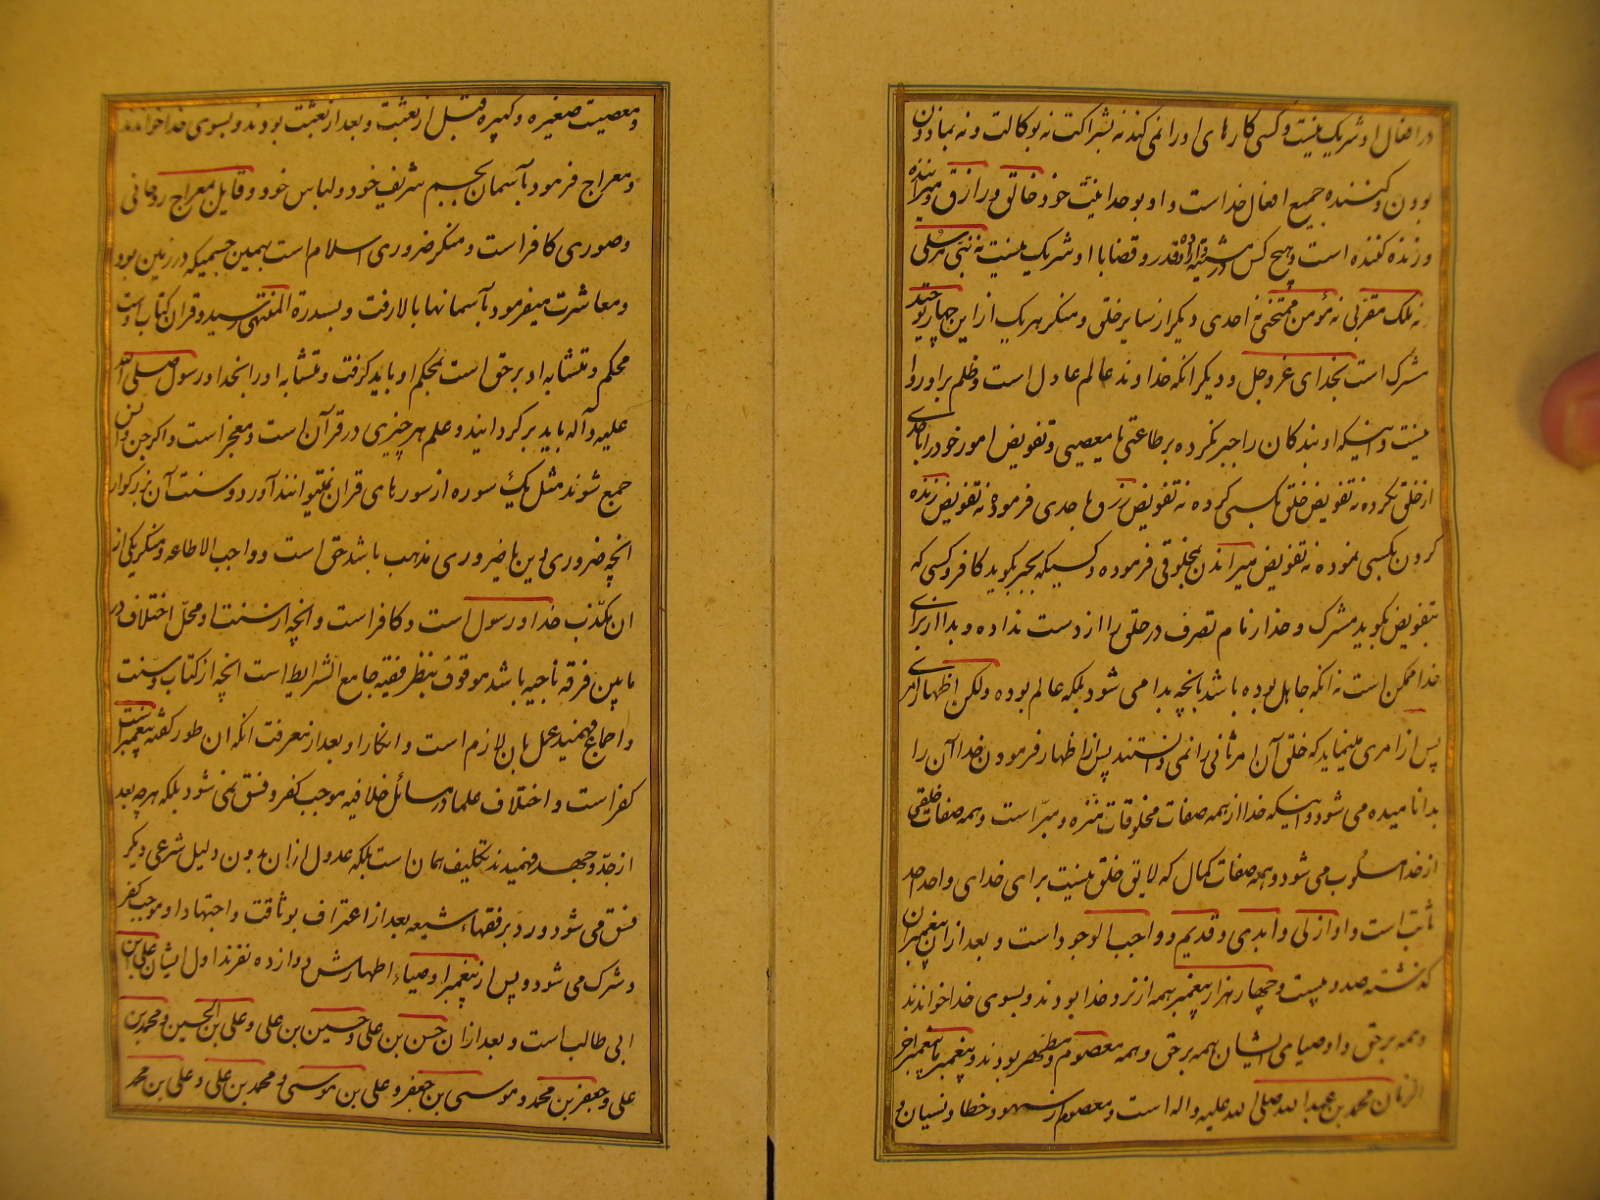 در افعال او شریک نیست و کسی کارهای او را نمی کند نه بشراکت نه بوکالت و نه بماذون
بودن و کننده جمیع افعال خداست و او بوحدانیت خود خالق و رازق و میراننده
و زنده کننده است و هیچ کس در مشیة و اراده و قدر و قضا با او شریک نیست نه نبی مرسلی
نه ملک مقربی نه مؤمن ممتحنی نه احدی دیگر از سایر خلق و منکر هر یک از این چهار توحید
مشرک است بخدای عزوجل و دیگر انکه خداوند عالم عادل است و ظلم بر او روا
نیست و اینکه او بندکان را جبر نکرده بر طاعتی یا معصیتی و تفویض امور خود را باحدی
از خلق نکرده نه تفویض خلق بکسی کرده نه تفویض رزق باحدی فرموده نه تفویض زنده
کردن بکسی نموده نه تفویض میراندن بمخلوقی فرموده و کسیکه بجبر بکوید کافر و کسی که
بتفویض بکوید مشرک و خدا زمام تصرف در خلق را از دست نداده و بدا از برای
خدا ممکن است نه انکه جاهل بوده باشد بانچه بدا می شود بلکه عالم بوده ولکن اظهار امری
پس از امری مینماید که خلق آن امر ثانی را نمی دانستند پس از اظهار فرمودن خدا آن را
بدا نامیده می شود و اینکه خدا از همه صفات مخلوقات منزه و مبرّا است و همه صفات خلقی
از خدا مسلوب می شود و همه صفات کمال که لایق خلق نیست برای خدای واحد احد
ثابت است و او ازلی و ابدی و قدیم و واجب الوجود است و بعد از ان پیغمبران
کذشته صد و بیست و چهار هزار پیغمبر همه از نزد خدا بودند و بسوی خدا خواندند
و همه بر حق و اوصیای ایشان همه بر حق و همه معصوم و مطهر بودند و پیغمبر ما پیغمبر اخر
الزمان محمد بن عبد الله صلی الله علیه و اله است و معصوم از سهو و خطا و نسیان و
و معصیت صغیره و کبیره قبل از بعثت و بعد از بعثت بودند و بسوی خدا خواندند
و معراج فرمود بآسمان بجسم شریف خود و لباس خود و قایل بمعراج روحانی
و صوری کافر است و منکر ضروری اسلام است بهمین جسمیکه در زمین بود
و معاشرت میفرمود بآسمانها بالا رفت و بسدرة المنتهی رسید و قران کتاب اوست
محکم و متشابه او بر حق است بمحکم او باید کرفت و متشابه او را بخدا و رسول صلی الله
علیه و آله باید بر کردانید و علم هر چیزی در قرآن است و معجز است و اکر جن و انس
جمع شوند مثل یک سوره از سورهای قران نمیتوانند آورد و سنت آن بزرکوار
انچه ضروری دین یا ضروری مذهب باشد حق است و واجب الاطاعه و منکر یکی از
ان مکذب خدا و رسول است و کافر است و انچه از سنت او محلّ اختلاف در
مابین فرقه ناجیه باشد موقوف بنظر فقیه جامع الشرایط است انچه از کتاب و سنت
و اجماع فهمید عمل بان لازم است و انکار او بعد از معرفت انکه ان طور کفته پیغمبر است
کفر است و اختلاف علما در مسائل خلافیه موجب کفر و فسق نمی شود بلکه هر چه بعد
از جدّ و جهد فهمیدند تکلیف همان است بلکه عدول از ان بدون دلیل شرعی دیگر
فسق می شود و رد بر فقهاء شیعه بعد از اعتراف بوثاقت و اجتهاد او موجب کفر
و شرک می شود و پس از پیغمبر اوصیاء اطهارش دوازده نفرند اول ایشان علی بن
ابی طالب است و بعد از ان حسن بن علی و حسین بن علی و علی بن الحسین و محمد بن
علی و جعفر بن محمد و موسی بن جعفر و علی بن موسی و محمد بن علی و علی بن محمد